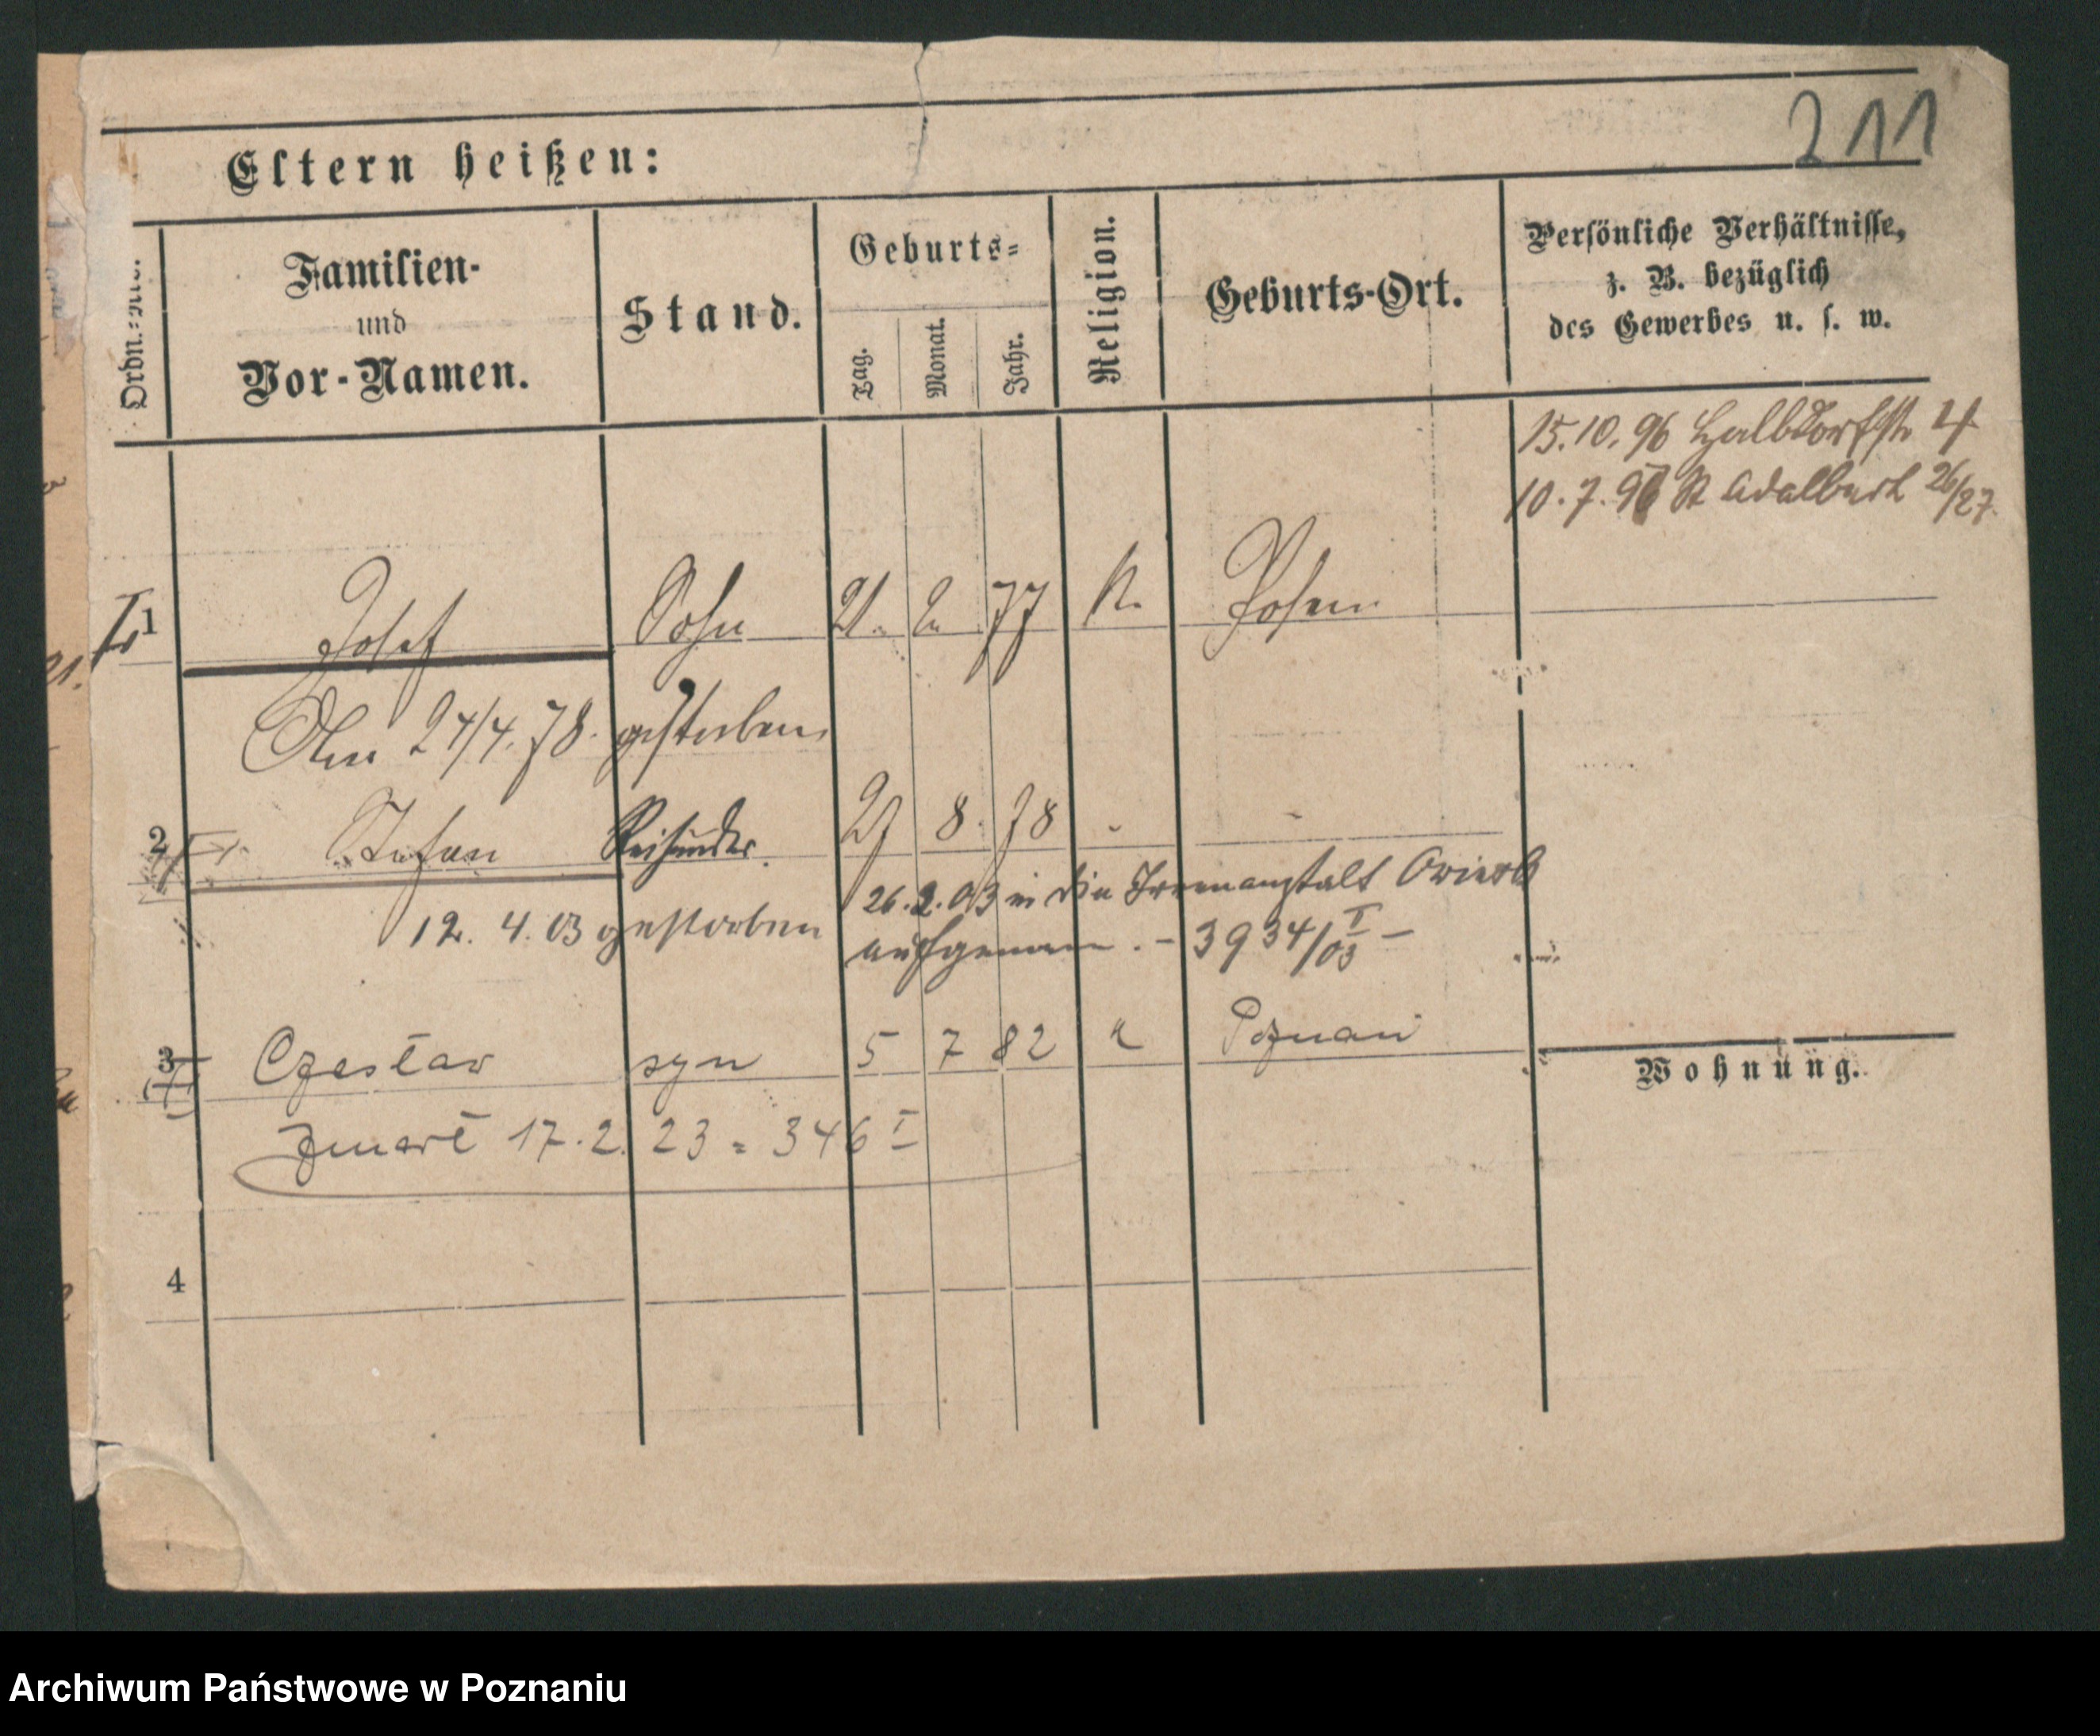 211
Eltern heißen:
Ordn.=Nro.
Familien-
und
Vor-Namen.
Stand.
Geburts=
Tag.
Monat.
Jahr.
Religion.
Geburts-Ort.
Persönliche Verhältnisse,
z. B. bezüglich
des Gewerbes u. s. w.
15.10.96 Halbdorfstr 4
10.7.97 St Adalbert 26/27.
1 Josef Sohn 21. 2. 77 K. Posen
Am 24/4.78. gestorben
2 Stefan Reisender. 27 8. 78
26.2.03 in die Irrenanstalt Owinsk
12. 4. 03 gestorben
aufgenomm. - 3934/I 03 -
3 Czesław syn 5 7 82 k Poznań
Zmarł 17.2.23 = 346 I
Wohnung.
4
Archiwum Państwowe w Poznaniu